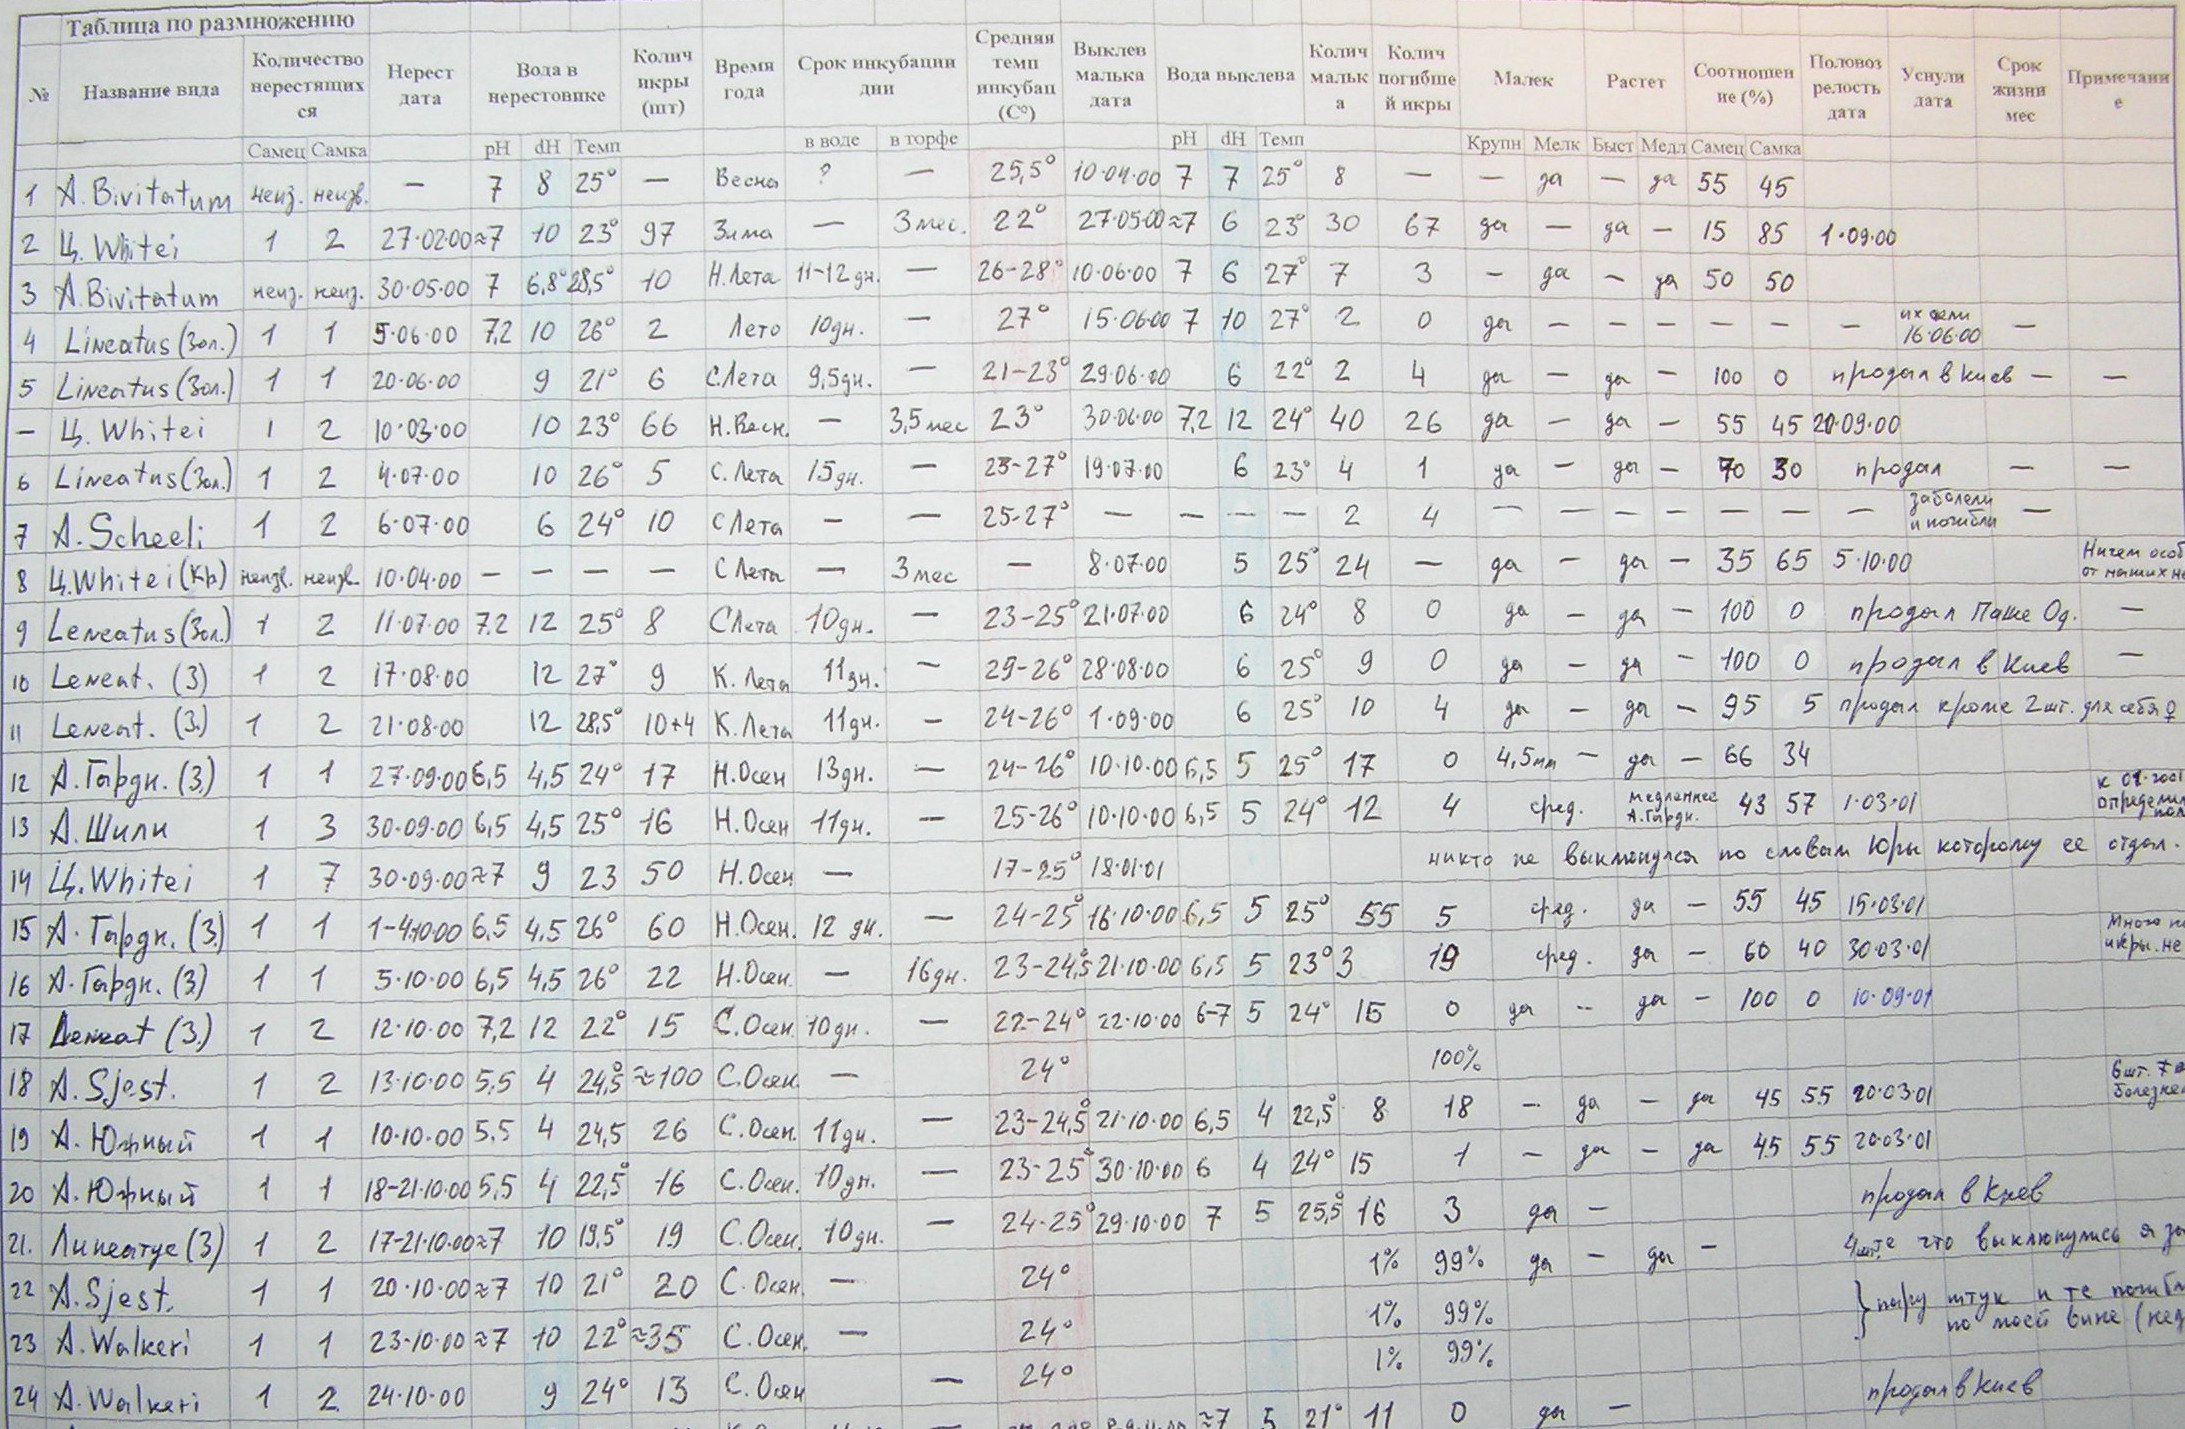 Таблица по размножению
№ Название вида Количество нерестящихся Нерест дата Вода в нерестовике Колич икры (шт) Время года Срок инкубации дни Средняя темп инкубац (С°) Выклев малька дата Вода выклева Колич малька Колич погибшей икры Малек Растет Соотношение (%) Половозрелость дата Уснули дата Срок жизни мес Примечание
Самец Самка pH dH Темп в воде в торфе pH dH Темп Крупн Мелк Быст Медл Самец Самка
1 A. Bivitatum неиз. неизв. — 7 8 25° — Весна ? — 25,5° 10·04·00 7 7 25° 8 — — да — да 55 45
2 Ц. Whitei 1 2 27·02·00 ≈7 10 23° 97 Зима — 3 мес. 22° 27·05·00 ≈7 6 23° 30 67 да — да — 15 85 1·09·00
3 A. Bivitatum неиз. неиз. 30·05·00 7 6,8° 28,5° 10 Н.Лета 11-12 дн. — 26-28° 10·06·00 7 6 27° 7 3 — да — да 50 50
4 Lineatus (Зол.) 1 1 5·06·00 7,2 10 26° 2 Лето 10дн. — 27° 15·06·00 7 10 27° 2 0 да — — — — — — их 16·06·00 —
5 Lineatus (Зол.) 1 1 20·06·00 9 21° 6 С.Лета 9,5дн. — 21-23° 29·06·00 6 22° 2 4 да — да — 100 0 продал в Киев — —
— Ц. Whitei 1 2 10·03·00 10 23° 66 Н.Весн. — 3,5 мес 23° 30·06·00 7,2 12 24° 40 26 да — да — 55 45 20·09·00
6 Lineatus (Зол.) 1 2 4·07·00 10 26° 5 С.Лета 15дн. — 23-27° 19·07·00 6 23° 4 1 да — да — 70 30 продал — —
7 A. Scheeli 1 2 6·07·00 6 24° 10 С Лета — — 25-27° — — — — 2 4 — — — — — — — заболели и погибли —
8 Ц. Whitei (Кр) неизв. неизв. 10·04·00 — — — — С Лета — 3 мес — 8·07·00 5 25° 24 — да — да — 35 65 5·10·00 Ничем особ от наших
9 Leneatus (Зол.) 1 2 11·07·00 7.2 12 25° 8 С Лета 10дн. — 23-25° 21·07·00 6 24° 8 0 да — да — 100 0 продал Паше Од. —
10 Leneat. (З) 1 2 17·08·00 12 27° 9 К. Лета 11дн. — 25-26° 28·08·00 6 25° 9 0 да — да — 100 0 продал в Киев —
11 Leneat. (З.) 1 2 21·08·00 12 28,5° 10+4 К. Лета 11дн. — 24-26° 1·09·00 6 25° 10 4 да — да — 95 5 продал кроме 2шт. для себя ♀
12 А. Гардн. (З.) 1 1 27·09·00 6,5 4,5 24° 17 Н.Осен 13дн. — 24-26° 10·10·00 6,5 5 25° 17 0 4,5мм — да — 66 34
13 А. Шили 1 3 30·09·00 6,5 4,5 25° 16 Н.Осен 11дн. — 25-26° 10·10·00 6,5 5 24° 12 4 сред. медленнее А.Гардн. 43 57 1·03·01
14 Ц. Whitei 1 7 30·09·00 ≈7 9 23 50 Н.Осен — 17-25° 18·01·01 никто не выклюнулся по словам Юры которому ее отдал.
15 А. Гардн. (З.) 1 1 1-4·10·00 6,5 4,5 26° 60 Н.Осен. 12 дн. — 24-25° 16·10·00 6,5 5 25° 55 5 сред. да — 55 45 15·03·01
16 А. Гардн. (З) 1 1 5·10·00 6,5 4,5 26° 22 Н.Осен. — 16дн. 23-24,5° 21·10·00 6,5 5 23° 3 19 сред. да — 60 40 30·03·01 Много икры. не
17 Leneat (З.) 1 2 12·10·00 7,2 12 22° 15 С.Осен. 10дн. — 22-24° 22·10·00 6-7 5 24° 15 0 да — да — 100 0 10·09·01
18 A. Sjest. 1 2 13·10·00 5.5 4 24,5° ≈100 С.Осен. — 24° 100%
19 А. Южный 1 1 10·10·00 5.5 4 24,5 26 С.Осен. 11дн. — 23-24,5° 21·10·00 6,5 4 22,5° 8 18 — да — да 45 55 20·03·01 6шт.
20 А. Южный 1 1 18-21·10·00 5,5 4 22,5° 16 С.Осен. 10дн. — 23-25° 30·10·00 6 4 24° 15 1 — да — да 45 55 20·03·01
21. Линеатус (З) 1 2 17-21·10·00 ≈7 10 19,5° 19 С.Осен. 10дн. — 24-25° 29·10·00 7 5 25,5° 16 3 да — продал в Киев
22 A. Sjest. 1 1 20·10·00 ≈7 10 21° 20 С. Осен. — 24° 1% 99% да — да — 4шт. те что выклюнулись я
23 A. Walkeri 1 1 23·10·00 ≈7 10 22° ≈35 С. Осен. — 24° 1% 99% } пару штук и те погибл по моей вине
24 A. Walkeri 1 2 24·10·00 9 24° 13 С. Осен — 24° 1% 99%
≈7 5 21° 11 0 да — продал в Киев